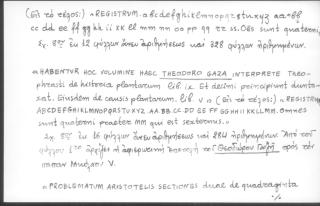 (Εἰς τὸ τέλος:) « REGISTRVM. a b c d e f g h i k l m n o p q r s t u x y z aa bb
cc dd ee ff gg hh ii kk ll mm nn oo pp qq rr ss. Oēs sunt quaterni,
Σχ. 8ον ἐκ 12 φύλλων ἄνευ ἀριθμήσεως καὶ 328 φύλλων ἠριθμημένων.
« HABENTVR HOC VOLVMINE HAEC THEODORO GAZA INTERPRETE Theo-
phrasti de historia plantarum lib. ix Et decimi principium dunta-
xat. Eiusdem de causis plantarum lib. v (εἰς τὸ τέλος:) « REGISTRVM
ABCDEFGHIKLMNOPQRSTVXYZ AA BB CC DD EE FF GG HH II KK LL MM. Omnes
sunt quaterni praeter MM qui est
Σχ. 8ον ἐκ 16 φύλλων ἄνευ ἀριθμήσεως καὶ 284 ἠριθμημένων. Ἀπὸ τοῦ
φύλλου ἄρχεται ἡ ἀφιερωτικὴ ἐπιστολὴ τοῦ Θεοδώρου Γαζῆ πρὸς τὸν
πάπαν Νικόλαον V.
« PROBLEMATVM ARISTOTELIS SECTIONES duae de quadraginta